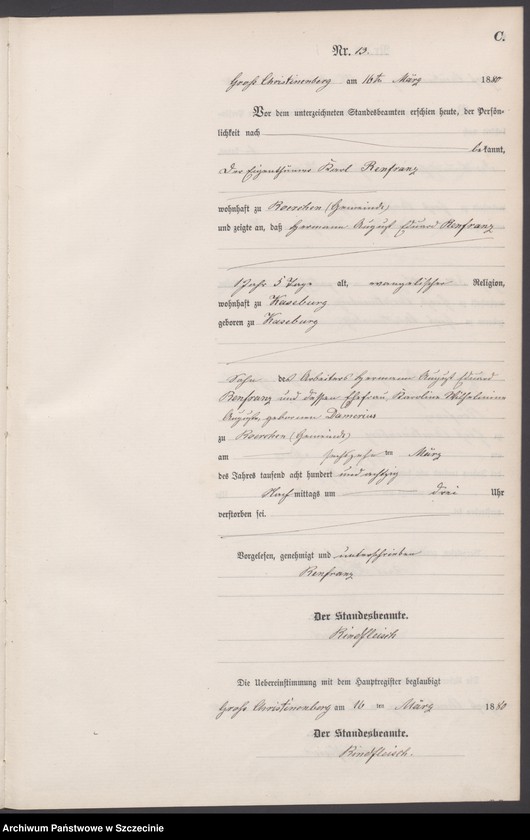 C.
Nr. 13.
Groß Christinenberg am 16ten März 1880
Vor dem unterzeichneten Standesbeamten erschien heute, der Persön-
lichkeit nach
bekannt,
Der Eigenthümer Karl Renfranz
wohnhaft zu Roerchen (Gemeinde)
und zeigte an, daß Hermann August Eduard Renfranz
1 Jahr 5 Tage alt, evangelischer Religion,
wohnhaft zu Kaseburg
geboren zu Kaseburg
Sohn des Arbeiters Hermann August Eduard
Renfranz und dessen Ehefrau, Karoline Wilhelmine
Auguste, geborenen Damerius
zu Roerchen (Gemeinde)
am sechszehn ten März
des Jahres tausend acht hundert und achtzig
Nach mittags um drei Uhr
verstorben sei.
Vorgelesen, genehmigt und unterschrieben
Renfranz
Der Standesbeamte.
Rindfleisch
Die Uebereinstimmung mit dem Hauptregister beglaubigt
Groß Christinenberg am 16 ten März 1880
Der Standesbeamte.
Rindfleisch.
Archiwum Państwowe w Szczecinie